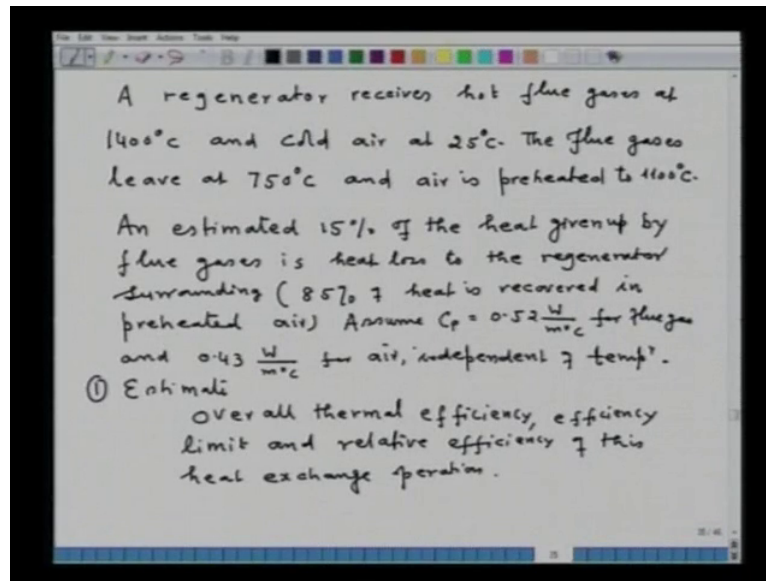 File Edit View Insert Actions Tools Help
A regenerator receives hot flue gases at
1400°C and cold air at 25°C. The flue gases
leave at 750°C and air is preheated to 1100°C.
An estimated 15% of the heat given up by
flue gases is heat loss to the regenerator
surrounding (85% of heat is recovered in
preheated air) Assume Cp = 0.52 W/m°C for flue gas
and 0.43 W/m°C for air, independent of temp.
① Estimate
overall thermal efficiency, effciency
limit and relative efficiency of this
heat exchange peration.
25